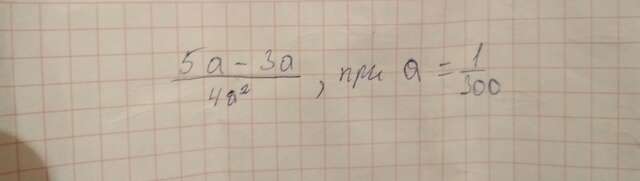 (5a - 3a)/(4a²), при a = 1/300